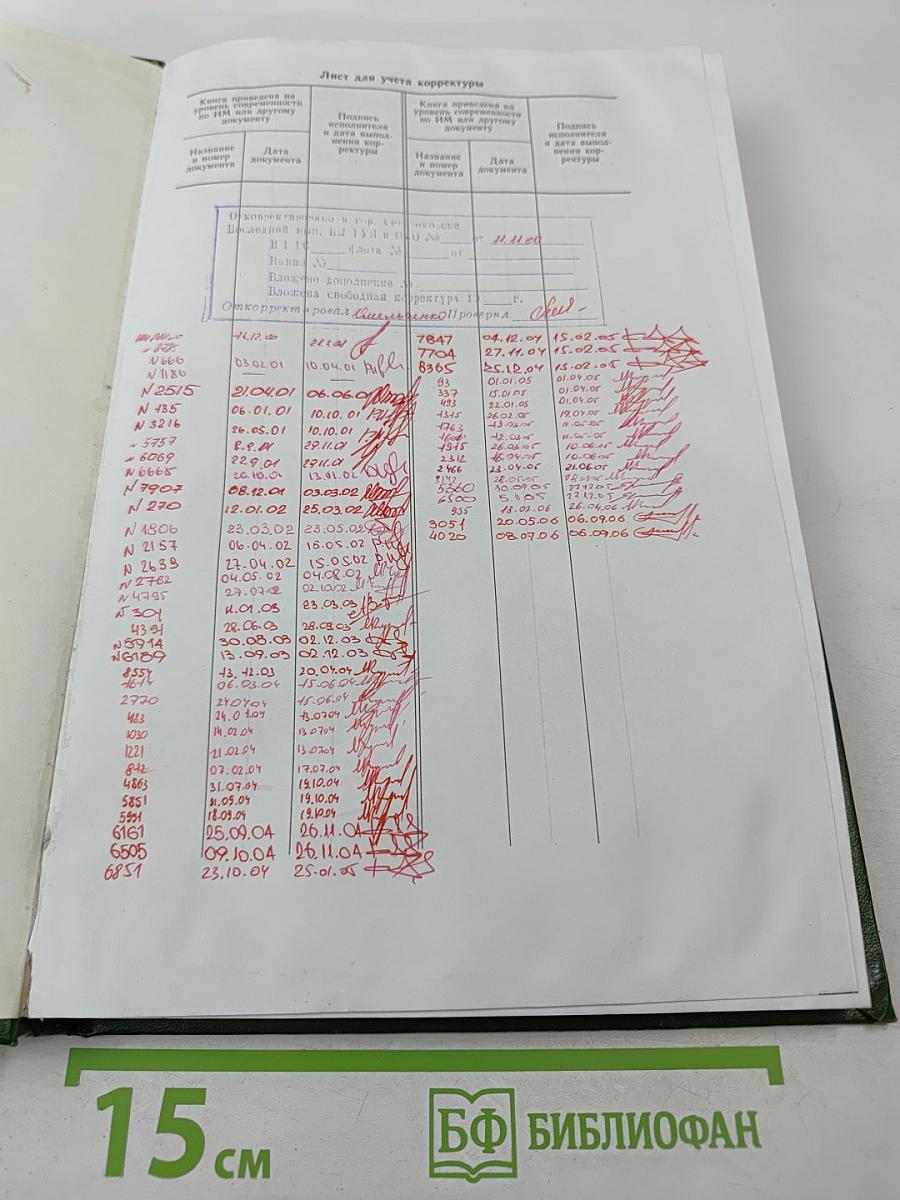 Лист для учета корректуры
Книга приведена на уровень современности по ИМ или другому документу
Подпись исполнителя и дата выполнения корректуры
Книга приведена на уровень современности по ИМ или другому документу
Подпись исполнителя и дата выполнения корректуры
Название и номер документа
Дата документа
Название и номер документа
Дата документа
Откорректировано в гор.
Последний вып. от 11.11.00
Флота № от
№
Вложено дополнение №
Вложена свободная корректура 19 г.
Откорректировал Проверил
N 666 03.02.01 10.04.01
N 1186
N 2515 21.04.01 06.06.01
N 135 06.01.01 10.10.01
N 3216 26.05.01 10.10.01
N 5757 8.9.01 29.11.01
N 6069 22.9.01 29.11.01
N 6665 20.10.01 13.01.02
N 7907 08.12.01 03.03.02
N 270 12.01.02 25.03.02
N 1806 23.03.02 23.05.02
N 2157 06.04.02 15.05.02
N 2639 27.04.02 15.05.02
N 2762 04.05.02 04.08.02
N 4795 27.07.02 02.10.02
N 301 11.01.03 23.03.03
4391 28.06.03 28.08.03
N 5914 30.08.03 02.12.03
N 6189 13.09.03 02.12.03
8554 13.12.03 20.04.04
1614 06.03.04 15.06.04
2770 24.04.04 15.06.04
483 24.01.04 13.07.04
1030 14.02.04 13.07.04
1221 21.02.04 13.07.04
842 07.02.04 17.07.04
4863 31.07.04 19.10.04
5851 11.09.04 19.10.04
5991 18.09.04 19.10.04
6161 25.09.04 26.11.04
6505 09.10.04 26.11.04
6851 23.10.04 25.01.05
7847 04.12.04 15.02.05
7704 27.11.04 15.02.05
8365 25.12.04 15.02.05
93 01.01.05 01.04.05
337 15.01.05 01.04.05
493 22.01.05 01.04.05
1315 26.02.05 19.04.05
1763 19.03.05 11.05.05
12.03.05 11.05.05
1915 26.03.05 10.06.05
2312 16.04.05 10.06.05
2466 23.04.05 21.06.05
5360 10.09.05 27.12.05
6500 5.11.05 27.12.05
955 18.02.06 26.04.06
3051 20.05.06 06.09.06
4020 08.07.06 06.09.06
15 см
БФ БИБЛИОФАН